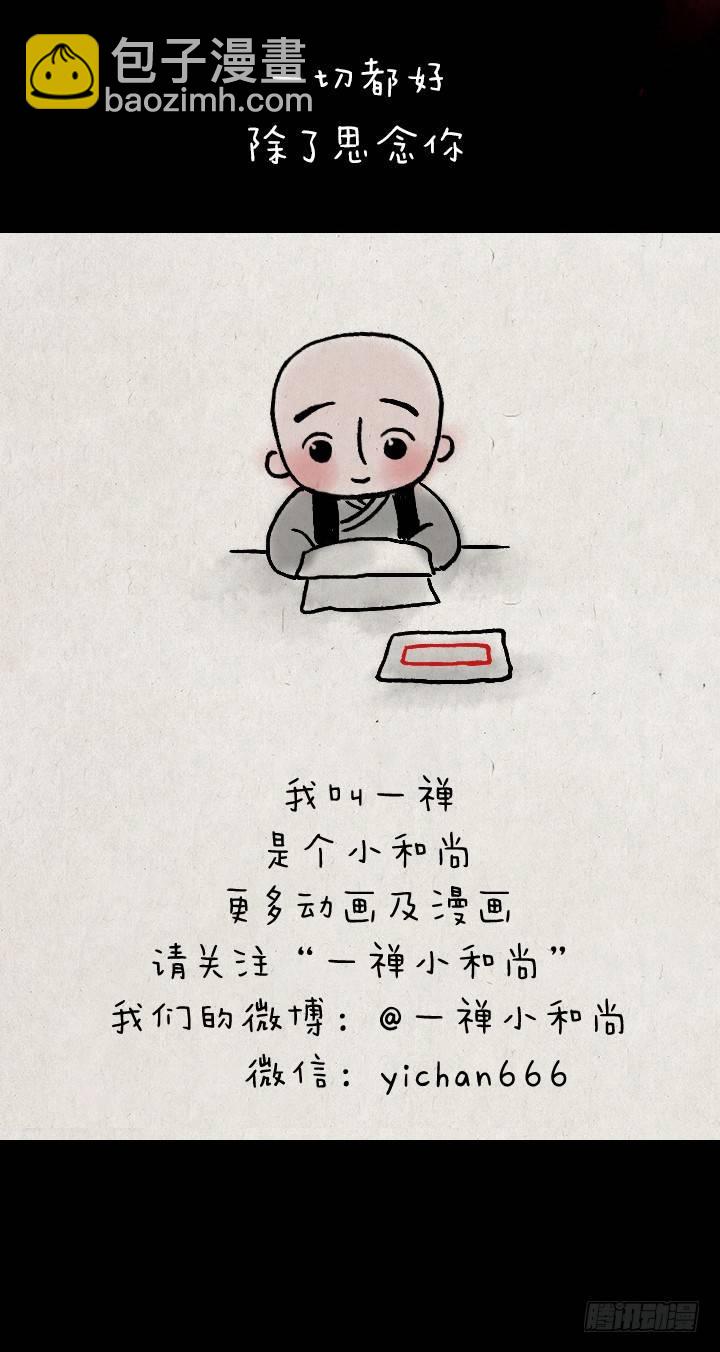 包子漫畫
baozimh.com
切都好
除了思念你
我叫一禅
是个小和尚
更多动画及漫画
请关注“一禅小和尚”
我们的微博：@一禅小和尚
微信：yichan666
腾讯动漫